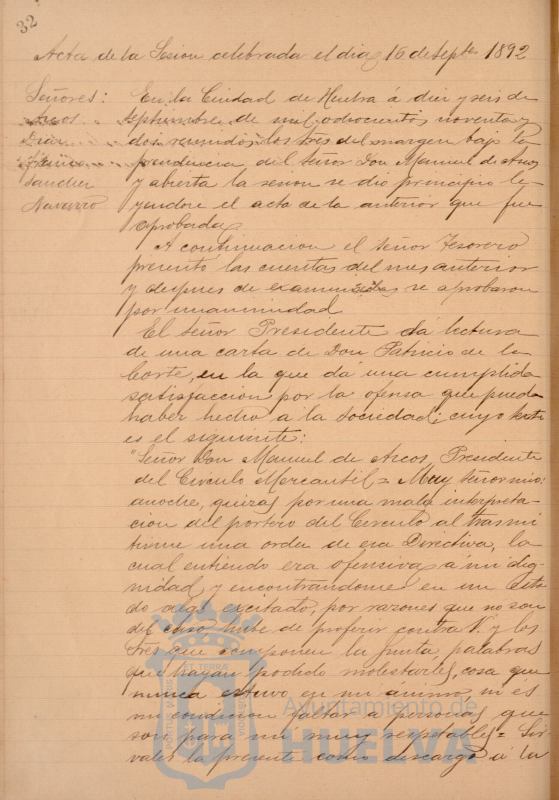 32
Acta de la Sesion celebrada el dia 16 de Septe 1892
Señores:
Arcos
Diaz
Sanchez
Navarro
En la Ciudad de Huelva á diez y seis de
Septiembre de mil ochocientos noventa y
dos reunidos los Sres del margen bajo la
presidencia del Señor Don Manuel de Arcos
y abierta la sesion se dio principio le-
yendose el acta de la anterior que fue
aprobada.
A continuacion el Señor Tesorero
presentó las cuentas del mes anterior
y despues de examinadas se aprobaron
por unanimidad.
El Señor Presidente dá lectura
de una carta de Don Patricio de la
Corte, en la que dá una cumplida
satisfaccion por la ofensa que pueda
haber hecho a la Sociedad; cuyo texto
es el siguiente:
"Señor Don Manuel de Arcos, Presidente
del Circulo Mercantil = Muy Señor mio:
anoche, quizas por una mala interpreta-
cion del portero del Circulo al trasmi
tirme una orden de esa Directiva, la
cual entiendo era ofensiva a mi dig-
nidad, y encontrandome en un esta
do algo excitado, por razones que no son
del caso, hube de proferir contra V. y los
Sres que componen la Junta, palabras
que hayan podido molestarles, cosa que
nunca estuvo en mi ánimo, ni es
mi condicion faltar a personas que
son para mi muy respetables = Sir-
vales la presente como descargo á la
ET TERRAE
Ayuntamiento de
HUELVA